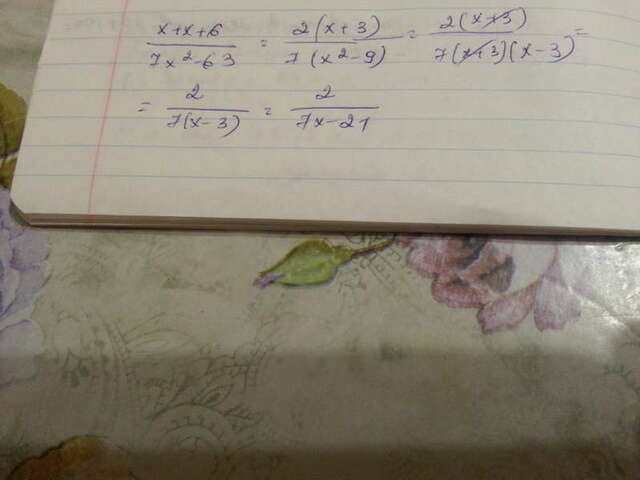 (x+x+6)/(7x²-63) = (2(x+3))/(7(x²-9)) = (2(x+3))/(7(x+3)(x-3)) =
= 2/(7(x-3)) = 2/(7x-21)